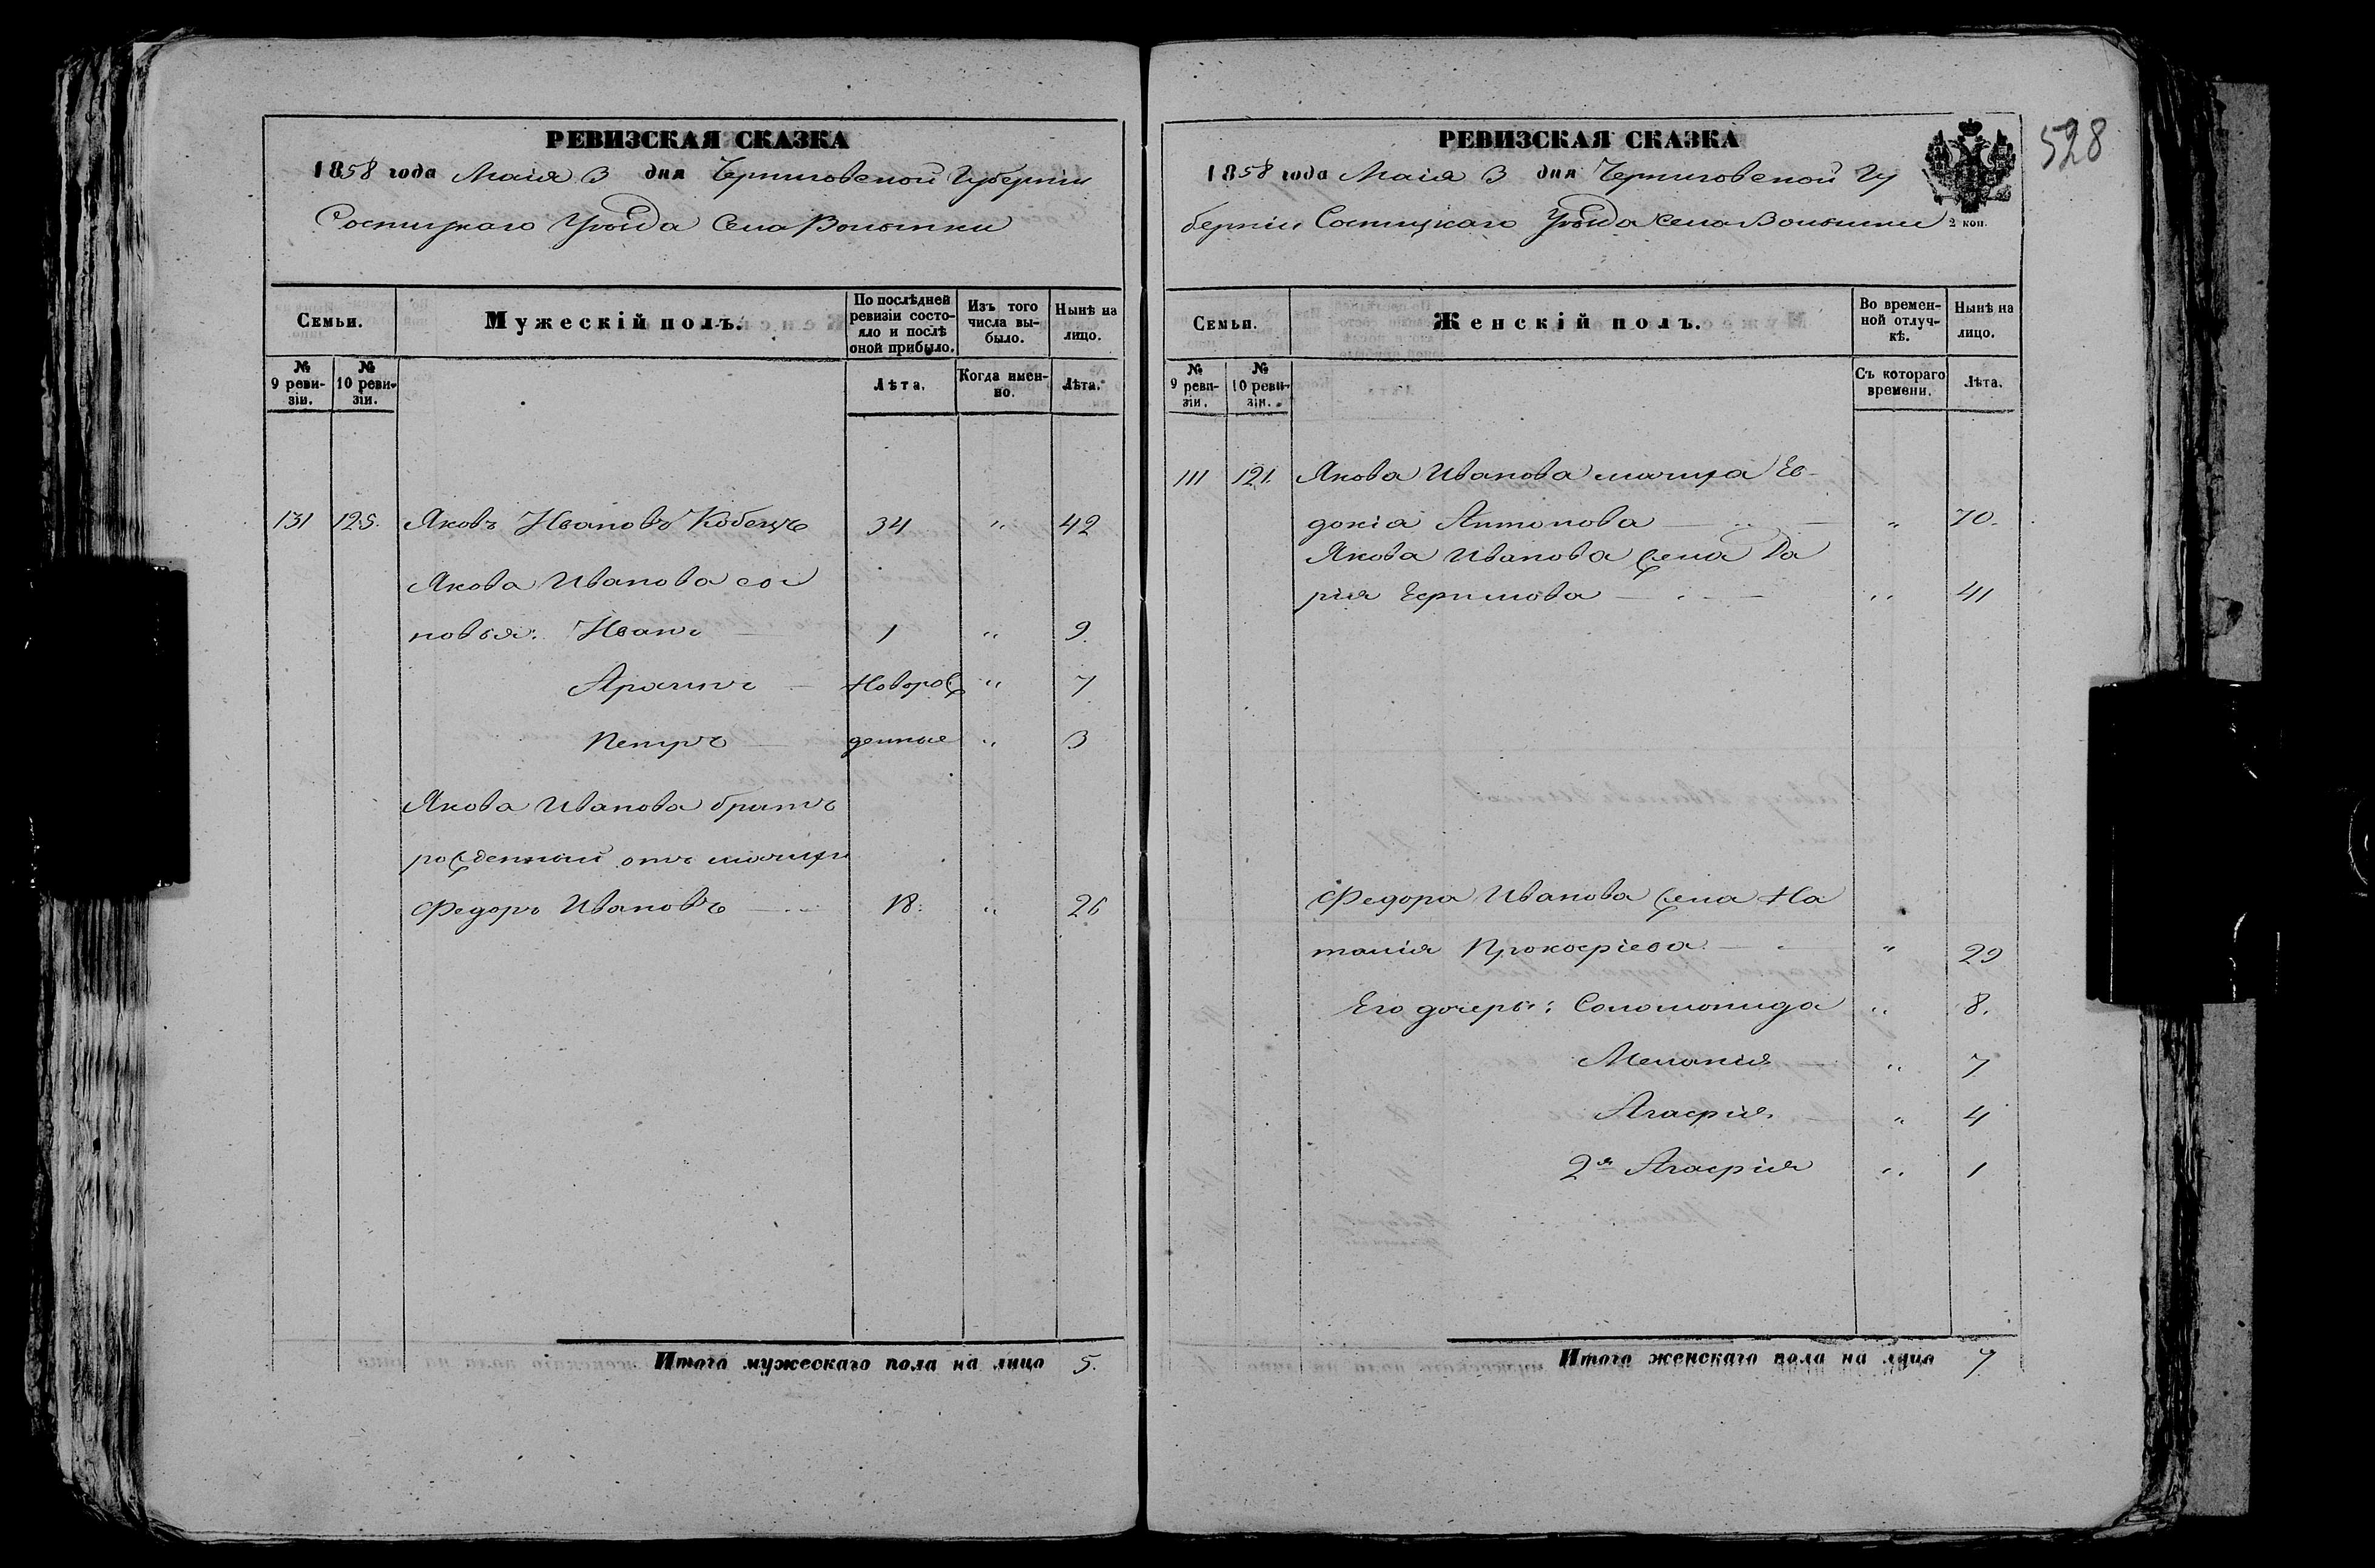 РЕВИЗСКАЯ СКАЗКА
1858 года Маія 3 дня Черниговской Губерніи
Сосницкаго Уѣзда Села Волынки
Семьи.
Мужескій полъ.
По послѣдней ревизіи состояло и послѣ оной прибыло.
Изъ того числа выбыло.
Нынѣ на лицо.
№ 9 ревизіи.
№ 10 ревизіи.
Лѣта.
Когда именно.
Лѣта.
131 125. Яковъ Ивановъ Кобецъ 34 " 42
Якова Иванова сы
новья: Иванъ — 1 " 9.
— Новорож " 7
Петръ — денные " 3
Якова Иванова братъ
рожденный отъ мачихи
Федоръ Ивановъ — 18. " 26
Итого мужескаго пола на лицо 5.
РЕВИЗСКАЯ СКАЗКА
1858 года Маія 3 дня Черниговской Гу
берніи Сосницкаго Уѣзда Села Волынки
2 коп.
528
Семьи.
Женскій полъ.
Во временной отлучкѣ.
Нынѣ на лицо.
№ 9 ревизіи.
№ 10 ревизіи.
Съ котораго времени.
Лѣта.
111 121. Якова Иванова мачиха Ев-
докіа Антонова — " 70.
Якова Иванова жена Да
рія Ефимова — " 41
Федора Иванова жена На
талія Прокофіева — " 29
Его дочеры: Соломонида " 8.
Меланія " 7
Агафія. " 4
2я Агафія " 1
Итого женскаго пола на лицо 7